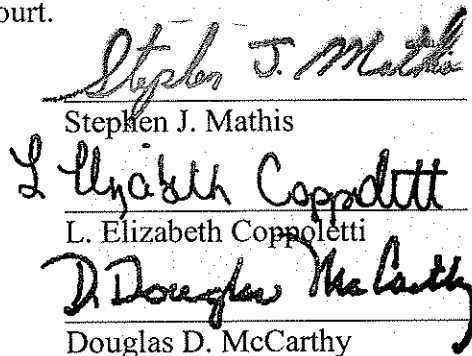 ourt.
Stephen J. Mathis
Stephen J. Mathis
L Elizabeth Coppoletti
L. Elizabeth Coppoletti
D. Douglas McCarthy
Douglas D. McCarthy